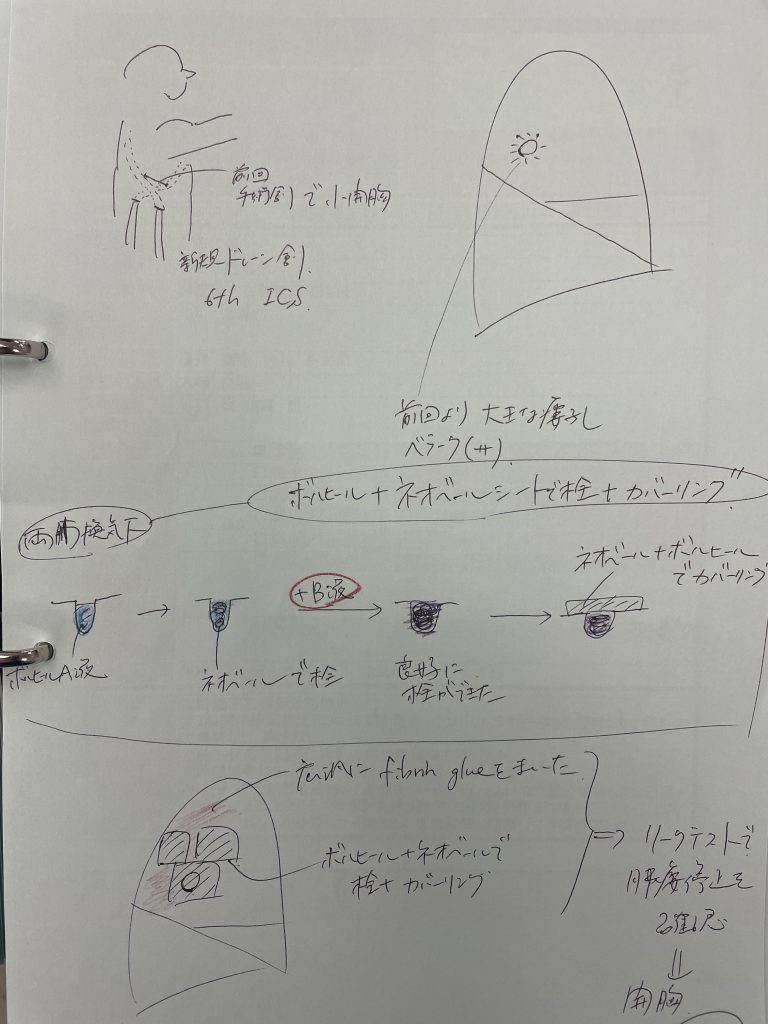 前回
手術創で小開胸
新規ドレーン創
6th ICS.
前回より大きな瘻孔
ベラーク(++)
両肺換気下
ボルヒール+ネオベールシートで栓+カバーリング
+B液
ネオベール+ボルヒール
でカバーリング
ボルヒールA液
ネオベールで栓
良好に
栓ができた
fibrin glueをまいた
ボルヒール+ネオベールで
栓+カバーリング
⇒ リークテストで
瘻停止を
確認
⇓
胸